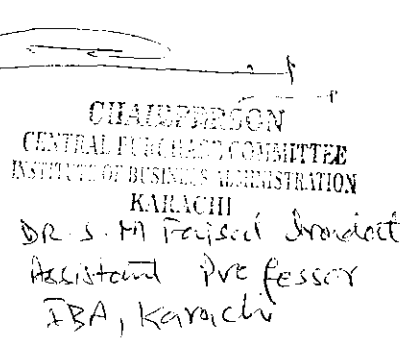 CHAIRPERSON
CENTRAL PURCHASE COMMITTEE
INSTITUTE OF BUSINESS ADMINISTRATION
KARACHI
DR. S. M Faisal
Assistant Professor
IBA, Karachi